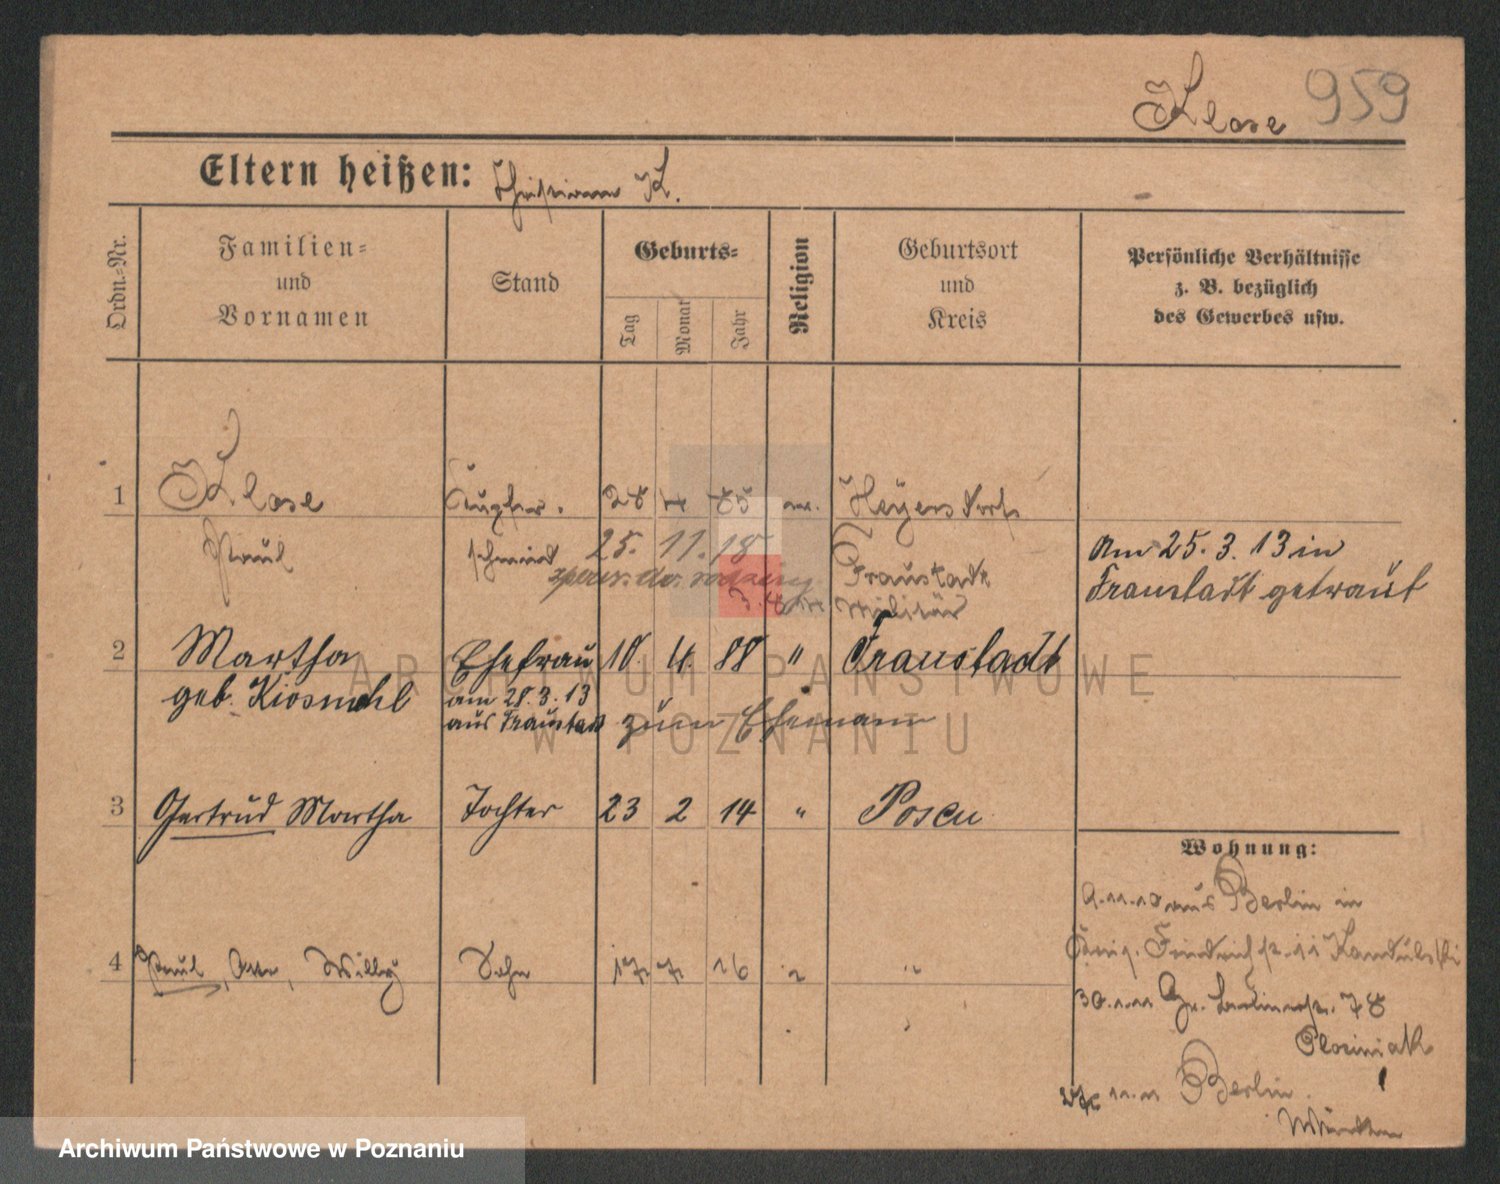 Klose 959
Eltern heißen: Christian K.
Ordn.-Nr.
Familien-
und
Vornamen
Stand
Geburts-
Tag
Monat
Jahr
Religion
Geburtsort
und
Kreis
Persönliche Verhältnisse
z. B. bezüglich
des Gewerbes usw.
1 Klose Kupfer- 28 4 85 ev. Heyersdorf
Paul schmied 25. 11. 18 Fraustadt
Militär
Am 25. 3. 13 in
Fraustadt getraut
2 Martha Ehefrau 10. 4. 88 " Fraustadt
geb. Kiosmehl am 28. 3. 13
aus Fraustadt zum Ehemann
3 Gertrud Martha Tochter 23 2 14 " Posen
4 Paul, Otto, Willy Sohn 17 7 16 " "
Wohnung:
aus Berlin in
78
Berlin.
ARCHIWUM PAŃSTWOWE
W POZNANIU
Archiwum Państwowe w Poznaniu